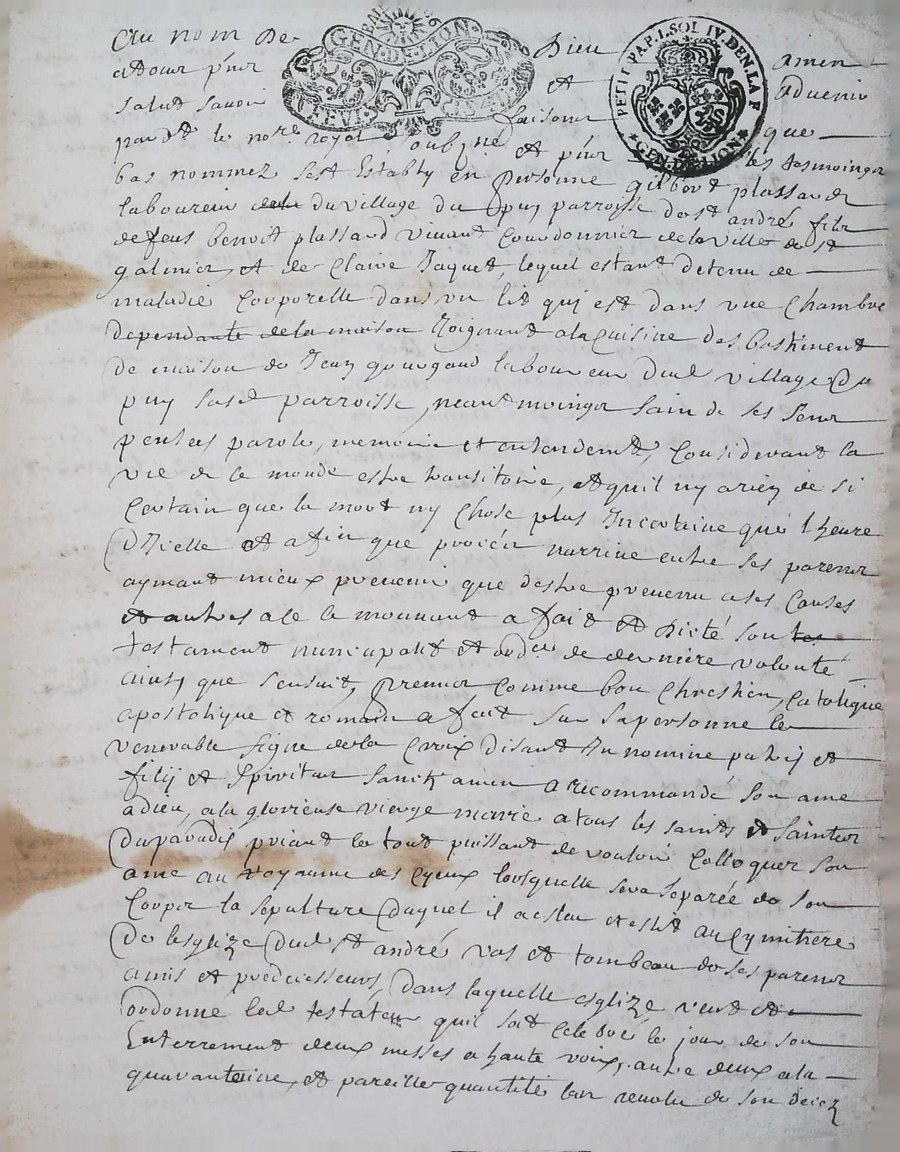 Au nom De Dieu amen
GEN. DE LION
PETIT PAP. I. SOL IV. DEN. LA F
GEN. DE LION
atous p'nr et advenir
salut savoir faisons que
pardt le nore royal soubzne et p'nr les tesmoingz
bas nommez sest Estably en personne gilbert plassard
laboureur du village du puy parroisse de st andré filz
defeus benoit plassard vivant Courdonnier de la ville de st
galmier, et de Claire Jaquet, lequel estant detenu de
maladie Corporelle dans un lit qui est dans une Chambre
dependante de la maison Joignant ala Cuisine des bastiment
de maison de Jean laboureur dud village Du
puy susd parroisse, neantmoingz sain de ses senz
pensees parole, memoire et entendemt, Considerant la
vie de ce monde estre transitoire, et quil ny a rien de si
Certain que la mort ny Chose plus Incertaine que lheure
D'Icelle et afin que procez narrive entre ses parenz
aymant mieux prevenir que destre prevenu a ses Causes
et autres a ce le mouvant a fait et Dicté son
testament nuncupatif et ordce de derniere volonté
ainsy que sensuit, premier Comme bon Chrestien, Catolique
apostolique et romain a fait sur sa personne le
venerable signe de la Croix disant In nomine patrij et
filij et spiritus sancti amen a recommandé son ame
adieu, ala glorieuse vierge marie a tous les saints et saintes
Du paradis priant le tout puissant de vouloir Colloquer son
ame au royaume des Cyeux lorsquelle sera separée de son
Corps la sepulture Duquel il a eslu et eslit au Cymitiere
De lesglize Dud st andré vas et tombeau de ses parenz
amis et predecesseurs, dans laquelle esglize veut et
ordonne led testateur quil soit Celebré le jour de son
Enterrement deux messes a haute voix, autre deux ala
quarantaine, et pareille quantité lan revolu de son decez